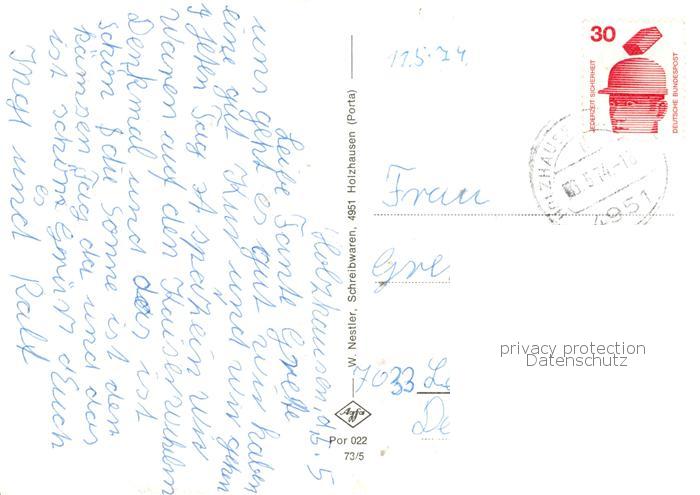 Holzhausen, d. 5. 5
Liebe Tante Grete
uns geht es gut wir haben
eine gute Kur und wir gehen
jeden Tag spazieren wir
waren auf den Kaiser wilhelm
Denkmal und das ist
schön die Sonne ist den
Tag da und das
ist schön Grüst dEuch
es
Inge und Ralf
W. Nestler, Schreibwaren, 4951 Holzhausen (Porta)
Agfa
Por 022
73/5
11.5.74.
30
JEDERZEIT SICHERHEIT
DEUTSCHE BUNDESPOST
HOLZHAUS
.5.74-18
4951
Frau
Gre
7033 Le
De
privacy protection
Datenschutz